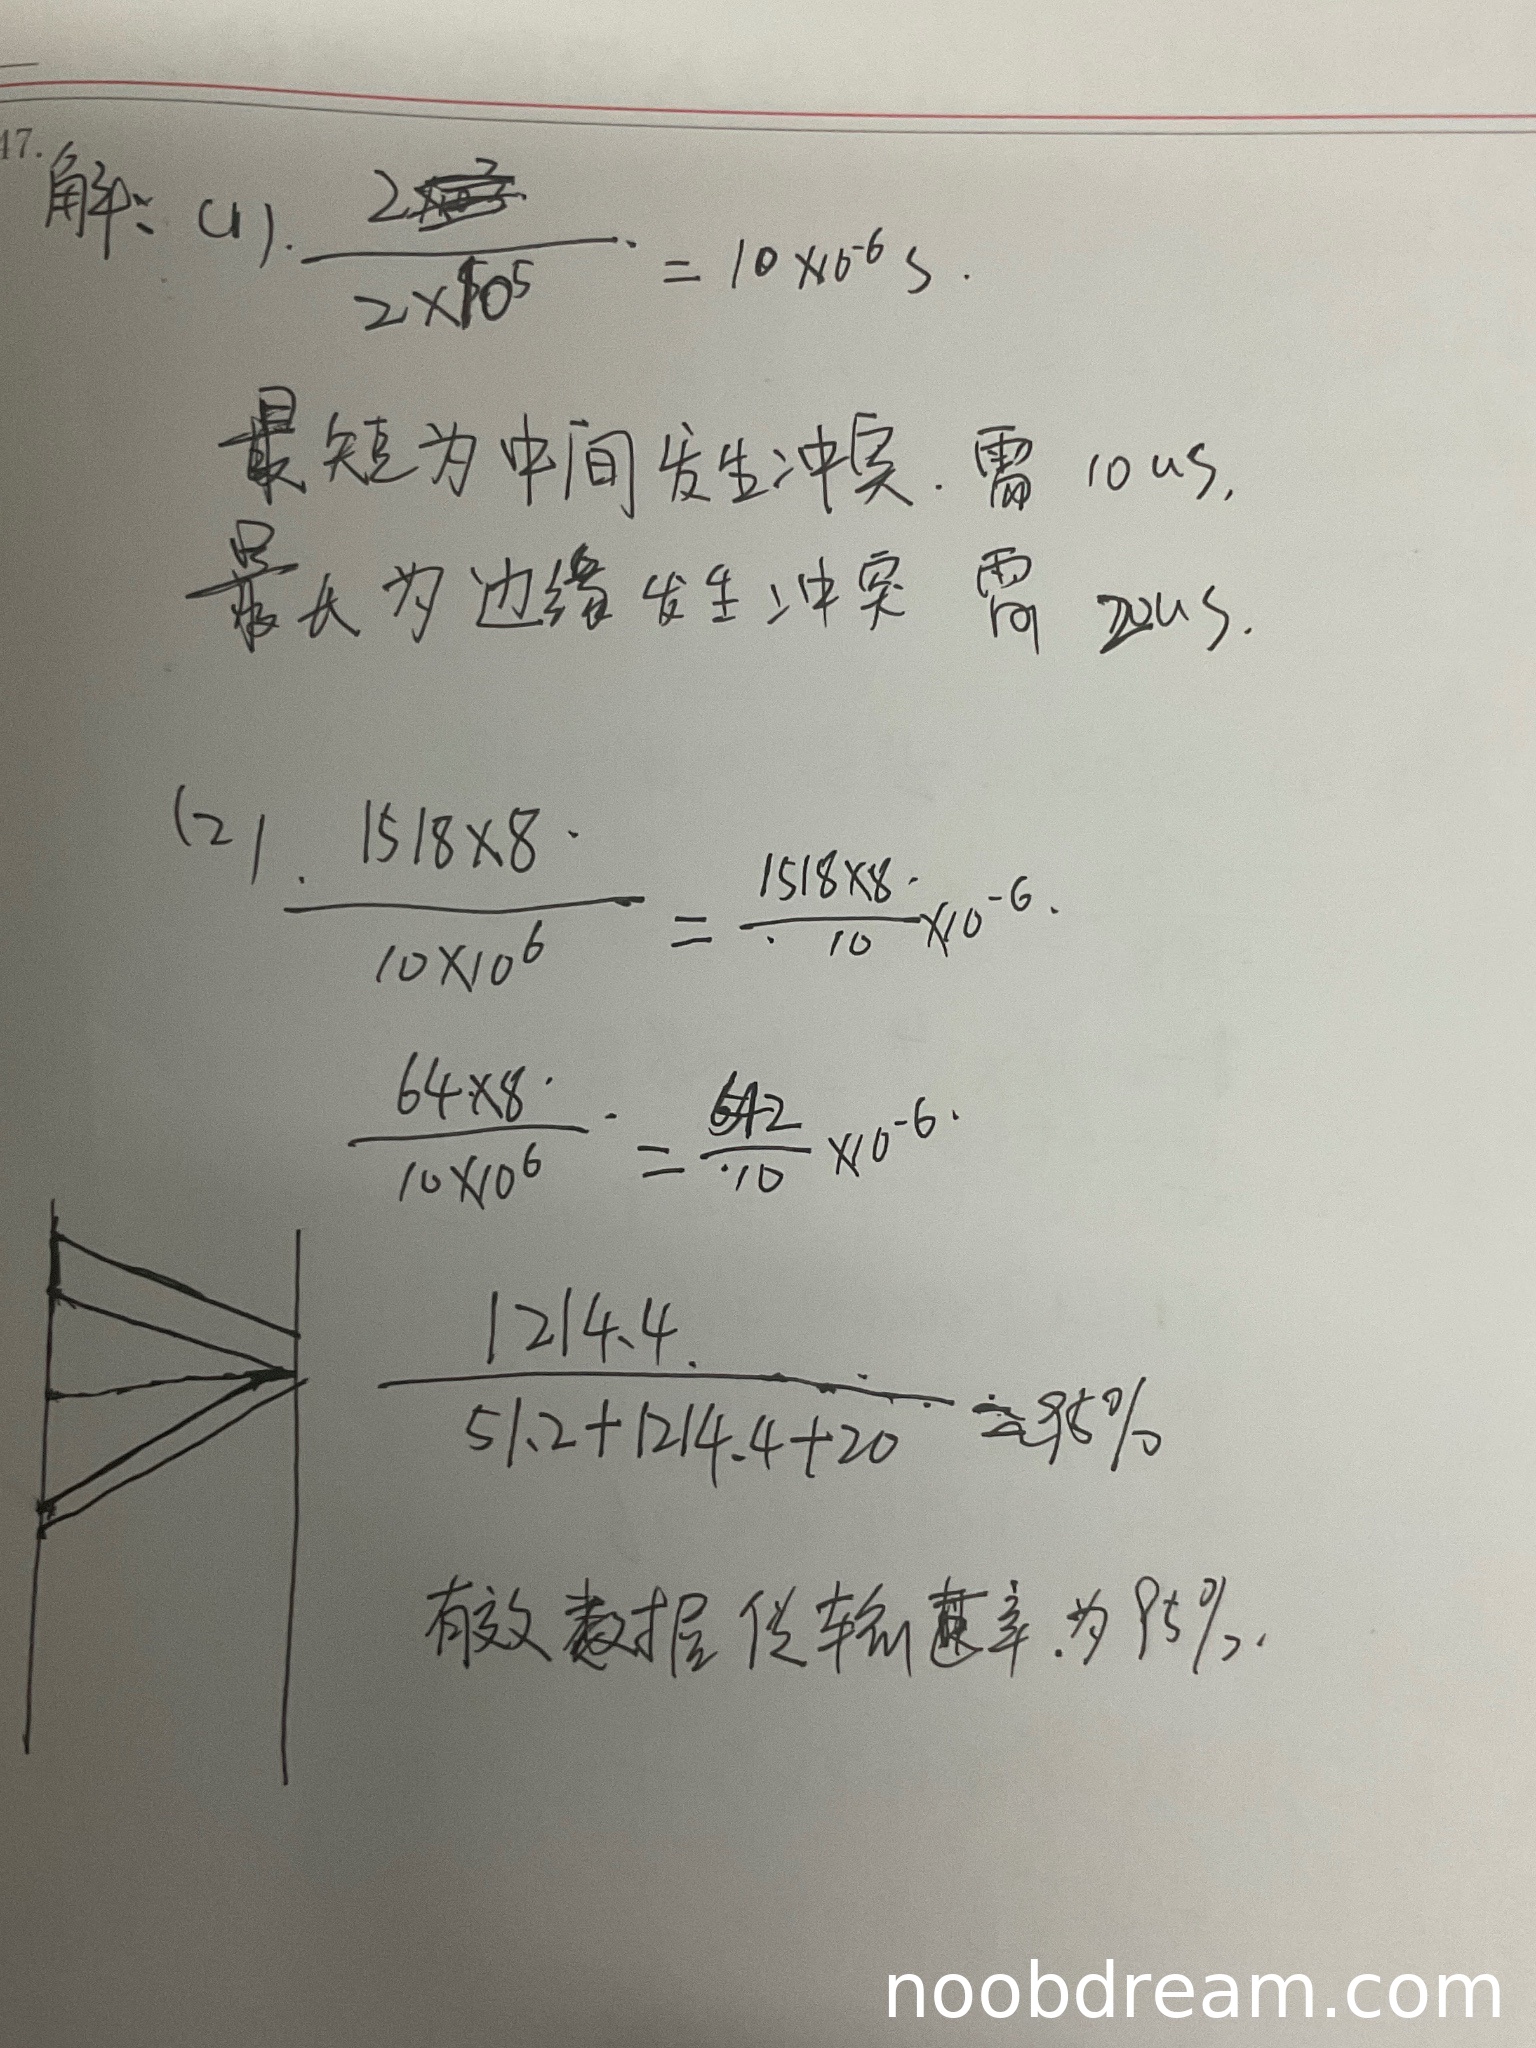 47.
解: (1). 2 / 2×10^5 = 10×10^-6 s.
最短为中间发生冲突. 需 10us,
最长为边缘发生冲突 需 20us.
(2). 1518×8 / 10×10^6 = 1518×8 / 10 ×10^-6.
64×8 / 10×10^6 = 512 / 10 ×10^-6.
1214.4 / 51.2+1214.4+20 ≈ 95%
有效数据传输速率.为95%.
noobdream.com